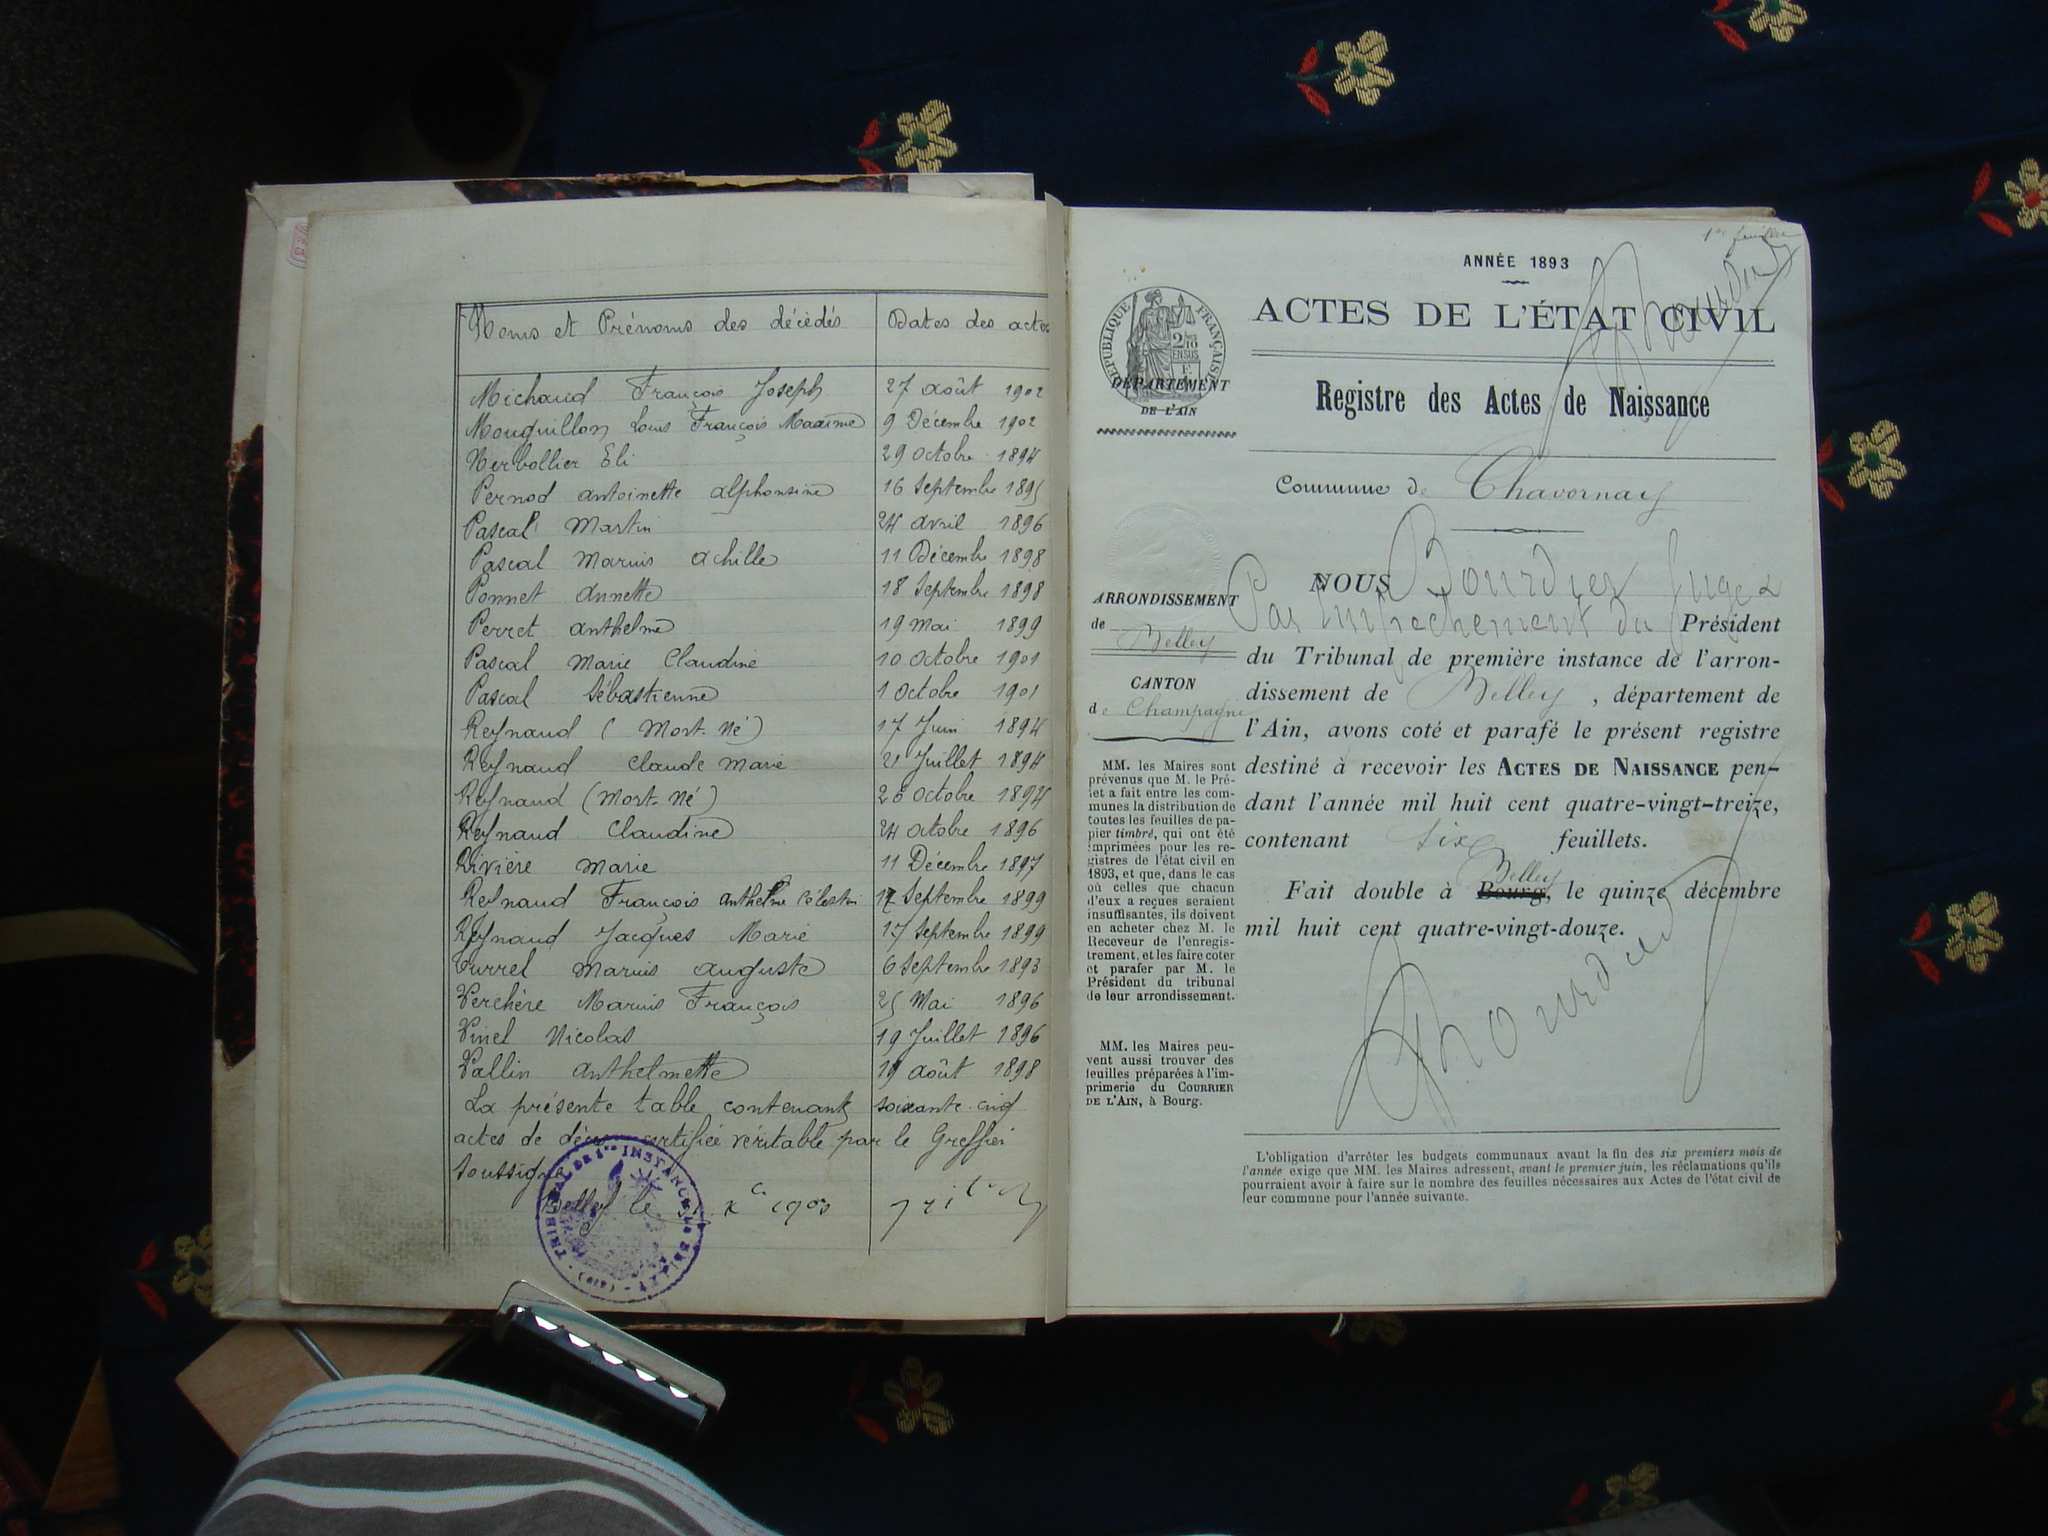 Noms et Prénoms des décédés Dates des actes
Michaud François Joseph 27 août 1902
Mouguillon Louis François Maxime 9 Décembre 1902
Nerbollier Eli 29 octobre 1894
Pernod antoinette alphonsine 16 Septembre 1895
Pascal Martin 24 avril 1896
Pascal Marius achille 11 Décembre 1898
Ponnet annette 18 Septembre 1898
Perret anthelme 19 Mai 1899
Pascal Marie Claudine 10 octobre 1901
Pascal Sébastienne 1 octobre 1901
Reynaud (Mort-Né) 17 Juin 1894
Reynaud Claude Marie 21 Juillet 1894
Reynaud (Mort-Né) 26 octobre 1894
Reynaud Claudine 24 octobre 1896
Rivière Marie 11 Décembre 1897
Reynaud François anthelme Célestin 17 Septembre 1899
Reynaud Jacques Marie 17 Septembre 1899
Turrel Marius auguste 6 Septembre 1893
Verchère Marius François 25 Mai 1896
Vinet Nicolas 19 Juillet 1896
Vallin anthelmette 19 août 1898
La présente table contenant soixante-cinq
actes de décès certifiée véritable par le Greffier
soussigné
Belley le 1903
TRIBUNAL DE 1re INSTANCE DE BELLEY (AIN)
1er feuillet
ANNÉE 1893
ACTES DE L'ÉTAT CIVIL
RÉPUBLIQUE FRANÇAISE
2/10 EN SUS
DÉPARTEMENT
DE L'AIN
Registre des Actes de Naissance
Commune de Chavornay
ARRONDISSEMENT
de Belley
CANTON
de Champagne
MM. les Maires sont
prévenus que M. le Pré-
fet a fait entre les com-
munes la distribution de
toutes les feuilles de pa-
pier timbré, qui ont été
imprimées pour les re-
gistres de l'état civil en
1893, et que, dans le cas
où celles que chacun
d'eux a reçues seraient
insuffisantes, ils doivent
en acheter chez M. le
Receveur de l'enregis-
trement, et les faire coter
et parafer par M. le
Président du tribunal
de leur arrondissement.
MM. les Maires peu-
vent aussi trouver des
feuilles préparées à l'im-
primerie du COURRIER
DE L'AIN, à Bourg.
NOUS Bourdier Juge
Par Empechement du Président
du Tribunal de première instance de l'arron-
dissement de Belley, département de
l'Ain, avons coté et parafé le présent registre
destiné à recevoir les ACTES DE NAISSANCE pen-
dant l'année mil huit cent quatre-vingt-treize,
contenant six feuillets.
Belley
Fait double à Bourg, le quinze décembre
mil huit cent quatre-vingt-douze.
L'obligation d'arrêter les budgets communaux avant la fin des six premiers mois de
l'année exige que MM. les Maires adressent, avant le premier juin, les réclamations qu'ils
pourraient avoir à faire sur le nombre des feuilles nécessaires aux Actes de l'état civil de
leur commune pour l'année suivante.